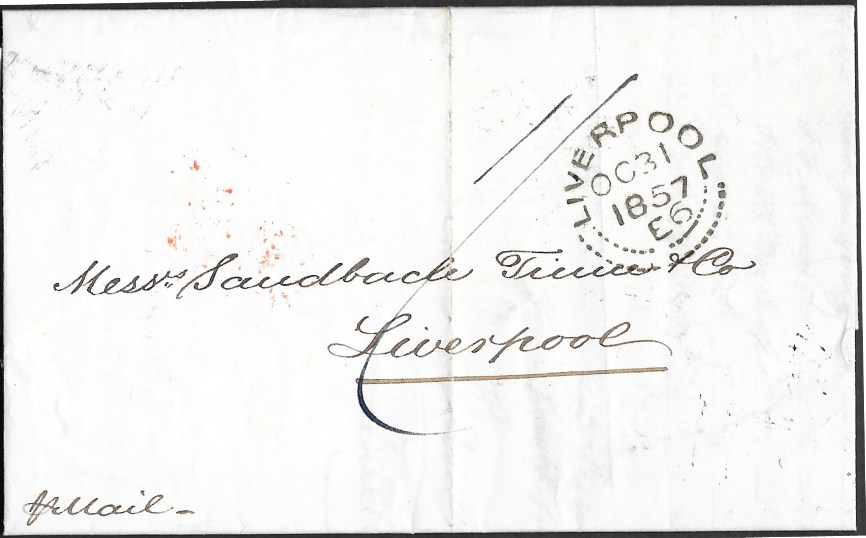 LIVERPOOL
OC31
1857
E6
Messrs. Sandbach Tinne & Co
Liverpool
p Mail -